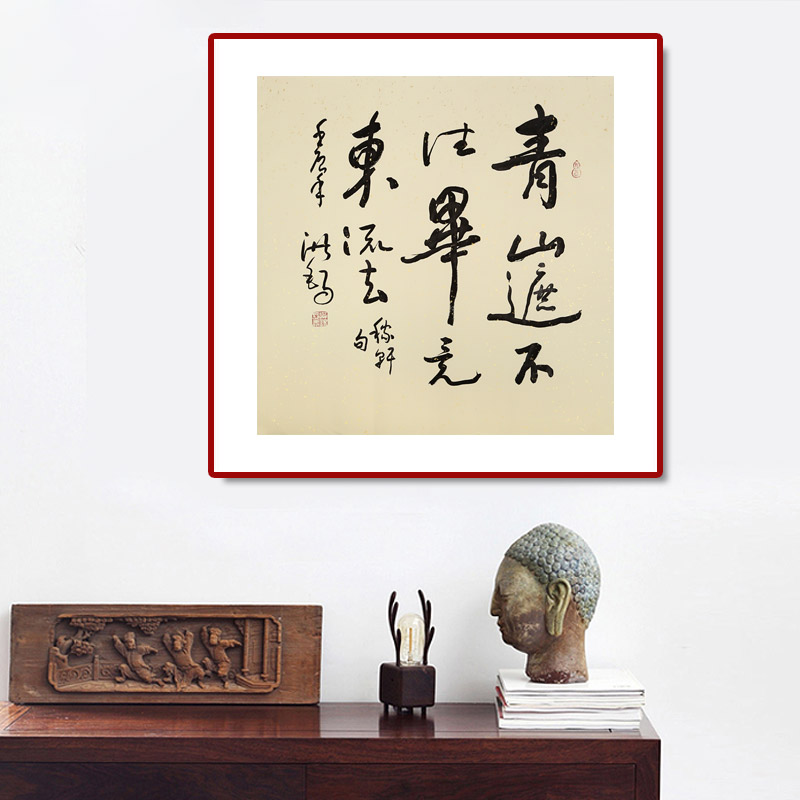 青山遮不
住畢竟
東流去
稼軒
句
壬辰年